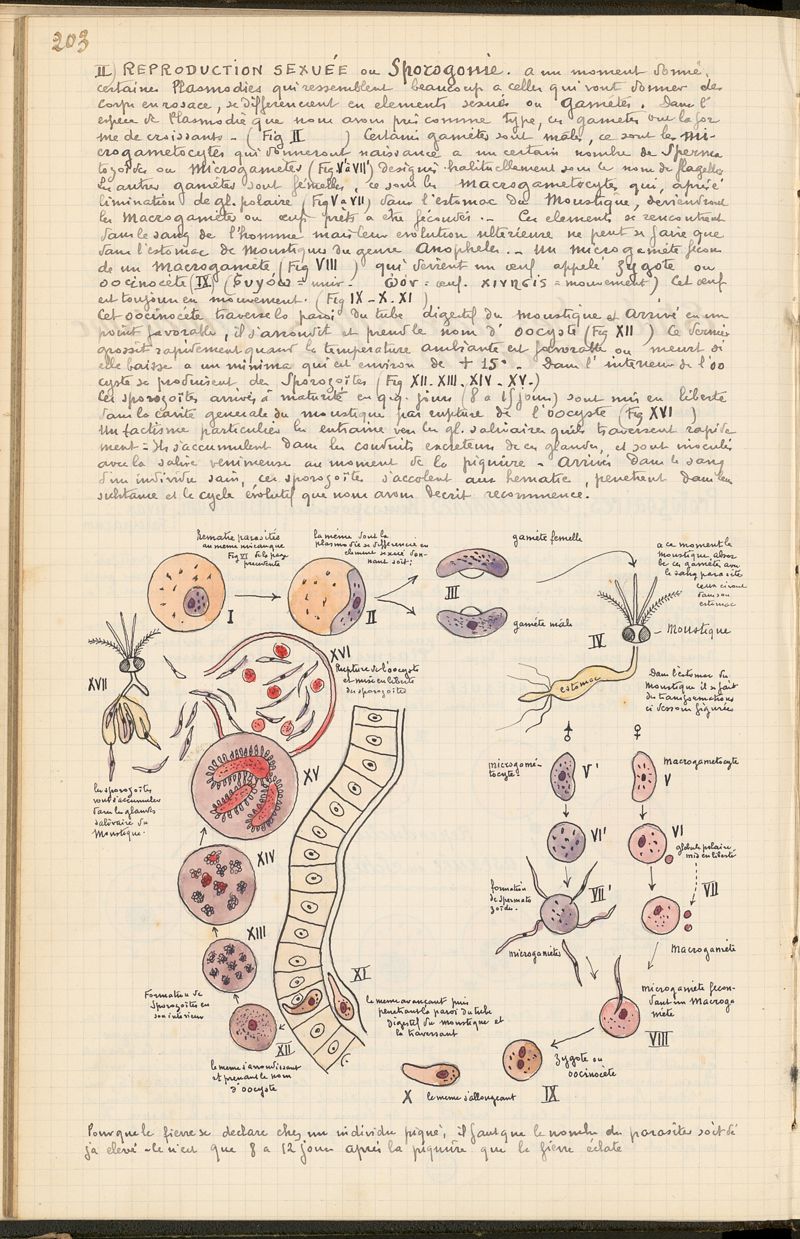 203
II) REPRODUCTION SEXUÉE ou Sporogonie. a un moment donné,
certaines Plasmodies qui ressemblent beaucoup a celles qui vont donner des
corps en rosace, se differencient en elements sexués ou Gamètes. Dans l'
espece de Plasmodie que nous avons pris comme type, ces gametes ont la for
me de croissants - (Fig II ) Certains gamètes sont mâles, ce sont les Mi-
crogametocytes qui donneront naissance a un certain nombre de Sperma
tozoïdes ou Microgamètes (Fig V'a VII') designés habituellement sous le nom de flagelles
Les autres gamètes sont femelles, ce sont les Macrogametocytes qui, après é
limination de gl. polaire (Fig V a VII) dans l'estomac du Moustique, deviendront
les Macrogamètes ou œufs prêts a être fécondés. - Ces elements se rencontrent
dans le sang de l'homme mais leur evolution ulterieure ne peut se faire que
dans l'estomac de Moustiques du genre Anopheles. - Un microgamète fécon
de un Macrogamète (Fig VIII ) qui devient un œuf appelé Zygote ou
oocinocète (IX) = unir - = œuf. = mouvement) Cet œuf
est toujours en mouvement. (Fig IX - X. XI )
Cet oocinocète traverse la paroi du tube digestif du moustique et Arrivé en un
point favorable, il s'arrondit et prend le nom d'oocyste (Fig XII ) Ce dernier
grossit rapidement quand la temperature ambiante est favorable ou meurt si
elle baisse a un minima qui est environ de + 15° - Dans l'interieur de l'oo
cyste se produisent des Sporozoïtes (Fig XII. XIII. XIV. XV.)
Ces sporozoïtes arrivés a maturité en q.q. jours (8 a 15 jours) sont mis en liberté
dans la cavité generale du moustique par rupture de l'oocyste (Fig XVI )
Un tactisme particulier les entraine vers les gl. salivaires qu'ils traversent rapide
ment - Ils s'accumulent dans les conduits excreteurs de ces glandes, et sont inoculés
avec la salive venimeuse au moment de la piqure - Arrivés dans le sang
d'un individu sain, ces sporozoïtes s'accolent aux hematies, penetrent dans leur
substance et le cycle évolutif que nous avons decrit recommence.
Hematie parasitée
au meme
Fig VI de la page
precedente
I
la même dont la
plasmodie se differencie en
element sexué don-
nant soit;
II
gamète femelle
III
gamète mâle
a ce moment le
moustique absor
be ces gamètes avec
le sang parasité
dans son
estomac
IV
Moustique
estomac
Dans l'estomac du
Moustique il se fait
des transformations
ci dessous figurées
XVII
XVI
Rupture de l'oocyste
et mise en liberté
des sporozoïtes
les sporozoïtes
vont s'accumuler
dans les glandes
salivaires du
Moustique.
XV
XIV
XIII
Formation de
Sporozoïtes en
son interieur
XII
le meme s'arrondissant
et prenant le nom
d'oocyste
XI
le meme avançant puis
penetrant la paroi du tube
digestif du moustique et
la traversant
♂
♀
microgamé-
tocyte
V'
Macrogametocyte
V
VI'
VI
globule polaire
mis en liberté
VII'
formation
de spermato
zoïde.
VII
microgamètes
Macrogamète
microgamète fecon-
dant un Macroga
mète
VIII
Zygote ou
oocinocète
IX
X le meme s'allongeant
Pour que la fievre se declare chez un individu piqué, il faut que le nombre des parasites soit dé
ja elevé - Ce n'est que 8 a 12 jours après la piqure que la fièvre éclate